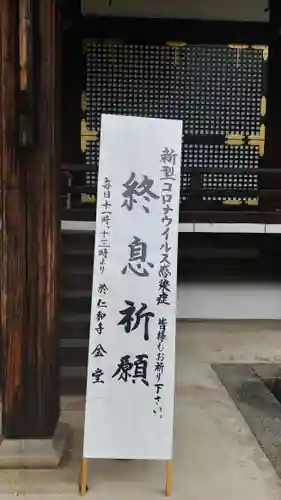 新型コロナウイルス感染症
終息祈願
皆様もお祈り下さい。
毎日十一時、十三時より
於 仁和寺 金堂